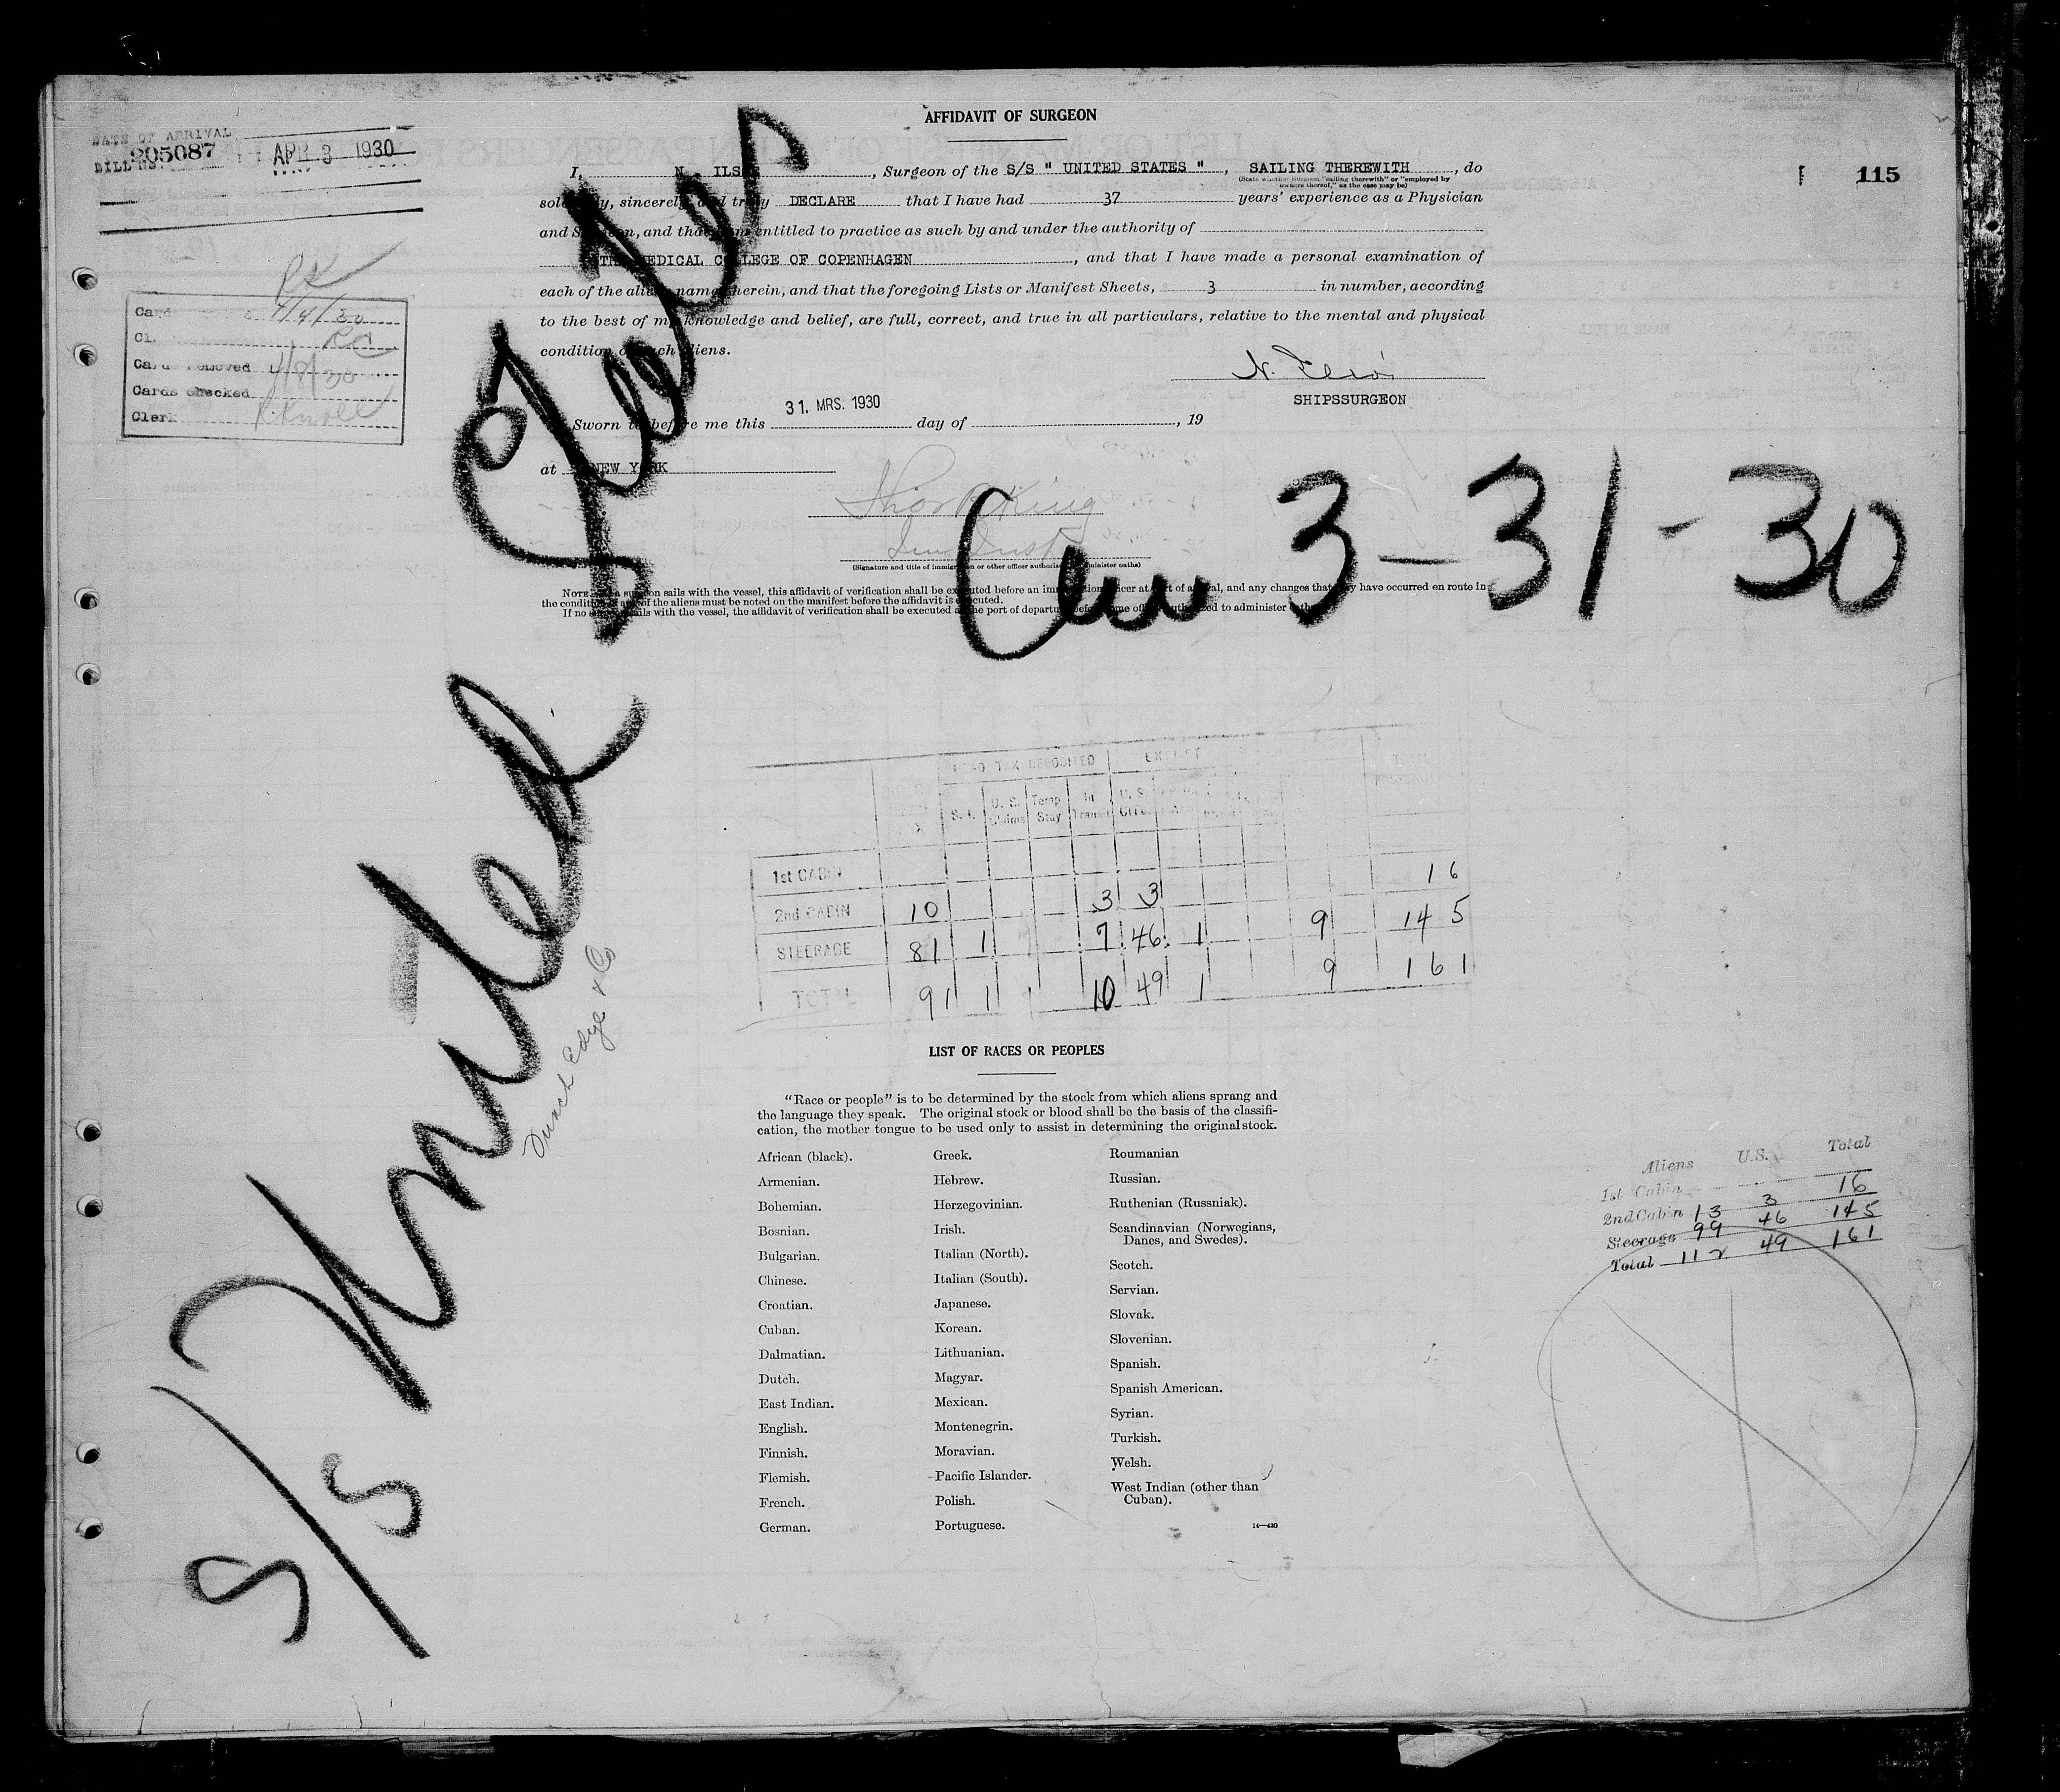 AFFIDAVIT OF SURGEON
DATE OF ARRIVAL
BILL No. 205087 APR 3 1930
115
I, N. , Surgeon of the S/S " UNITED STATES ", SAILING THEREWITH, do
(State whether Surgeon "sailing therewith" or "employed by
owners thereof," as the case may be)
solemnly, sincerely, and truly DECLARE that I have had 37 years' experience as a Physician
and Surgeon, and that I am entitled to practice as such by and under the authority of
THE MEDICAL COLLEGE OF COPENHAGEN, and that I have made a personal examination of
each of the aliens named herein, and that the foregoing Lists or Manifest Sheets, 3 in number, according
to the best of my knowledge and belief, are full, correct, and true in all particulars, relative to the mental and physical
condition of such aliens.
SHIPSSURGEON
Sworn to before me this 31. MRS. 1930 day of , 19
at NEW YORK
(Signature and title of immigration or other officer authorized to administer oaths)
NOTE.—If a surgeon sails with the vessel, this affidavit of verification shall be executed before an immigration officer at port of arrival, and any changes that may have occurred en route in
the condition of any of the aliens must be noted on the manifest before the affidavit is executed.
If no surgeon sails with the vessel, the affidavit of verification shall be executed at the port of departure before some officer authorized to administer oaths.
4/4/30
RC
Cards removed 4/8/30
Cards checked
Clerk
S/S United States
3-31-30
HEAD TAX DEPOSITED EXEMPT
S. I. U. S. Claims Temp Stay In Transit U. S. Citz.
1st CABIN
2nd CABIN 10 3 3 16
STEERAGE 81 1 7 46 1 9 145
TOTAL 91 1 10 49 1 9 161
LIST OF RACES OR PEOPLES
"Race or people" is to be determined by the stock from which aliens sprang and
the language they speak. The original stock or blood shall be the basis of the classifi-
cation, the mother tongue to be used only to assist in determining the original stock.
African (black).
Armenian.
Bohemian.
Bosnian.
Bulgarian.
Chinese.
Croatian.
Cuban.
Dalmatian.
Dutch.
East Indian.
English.
Finnish.
Flemish.
French.
German.
Greek.
Hebrew.
Herzegovinian.
Irish.
Italian (North).
Italian (South).
Japanese.
Korean.
Lithuanian.
Magyar.
Mexican.
Montenegrin.
Moravian.
Pacific Islander.
Polish.
Portuguese.
Roumanian
Russian.
Ruthenian (Russniak).
Scandinavian (Norwegians,
Danes, and Swedes).
Scotch.
Servian.
Slovak.
Slovenian.
Spanish.
Spanish American.
Syrian.
Turkish.
Welsh.
West Indian (other than
Cuban).
14—430
Aliens U.S. Total
1st Cabin
2nd Cabin 13 3 16
Steerage 99 46 145
Total 112 49 161